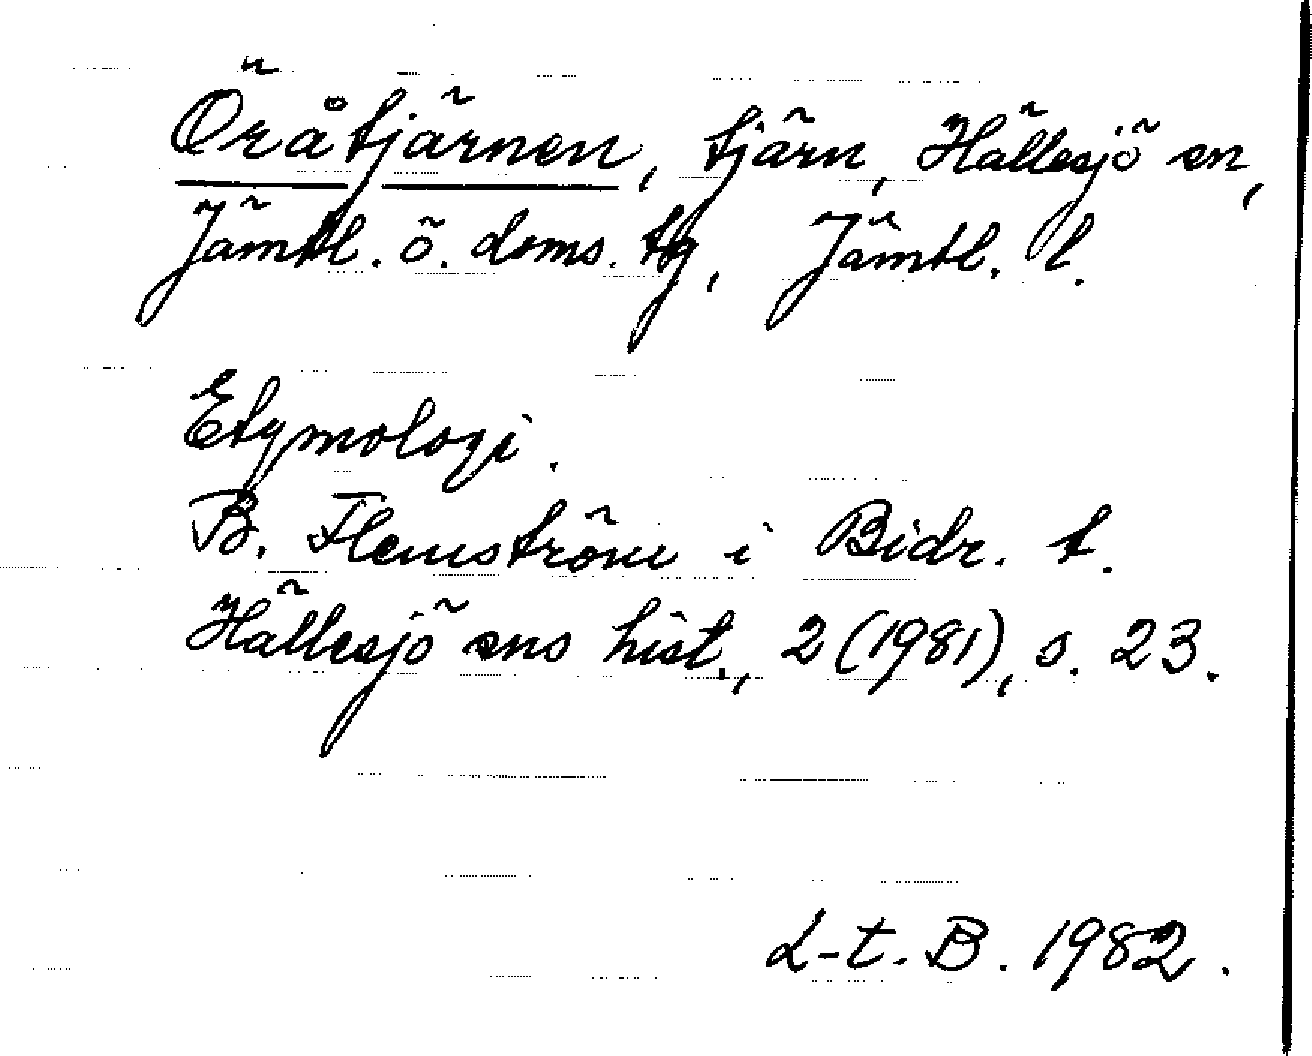 Öråtjärnen, tjärn, Hällesjö sn,
Jämtl. ö. doms. tg, Jämtl. l.
Etymologi.
B. Flemström i Bidr. t.
Hällesjö sns hist., 2 (1981), s. 23.
L-t. B. 1982.